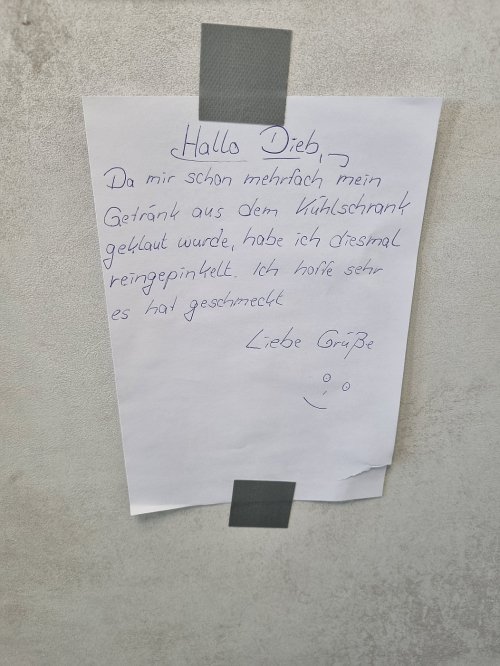 Hallo Dieb,
Da mir schon mehrfach mein
Getränk aus dem Kühlschrank
geklaut wurde, habe ich diesmal
reingepinkelt. Ich hoffe sehr
es hat geschmeckt
Liebe Grüße